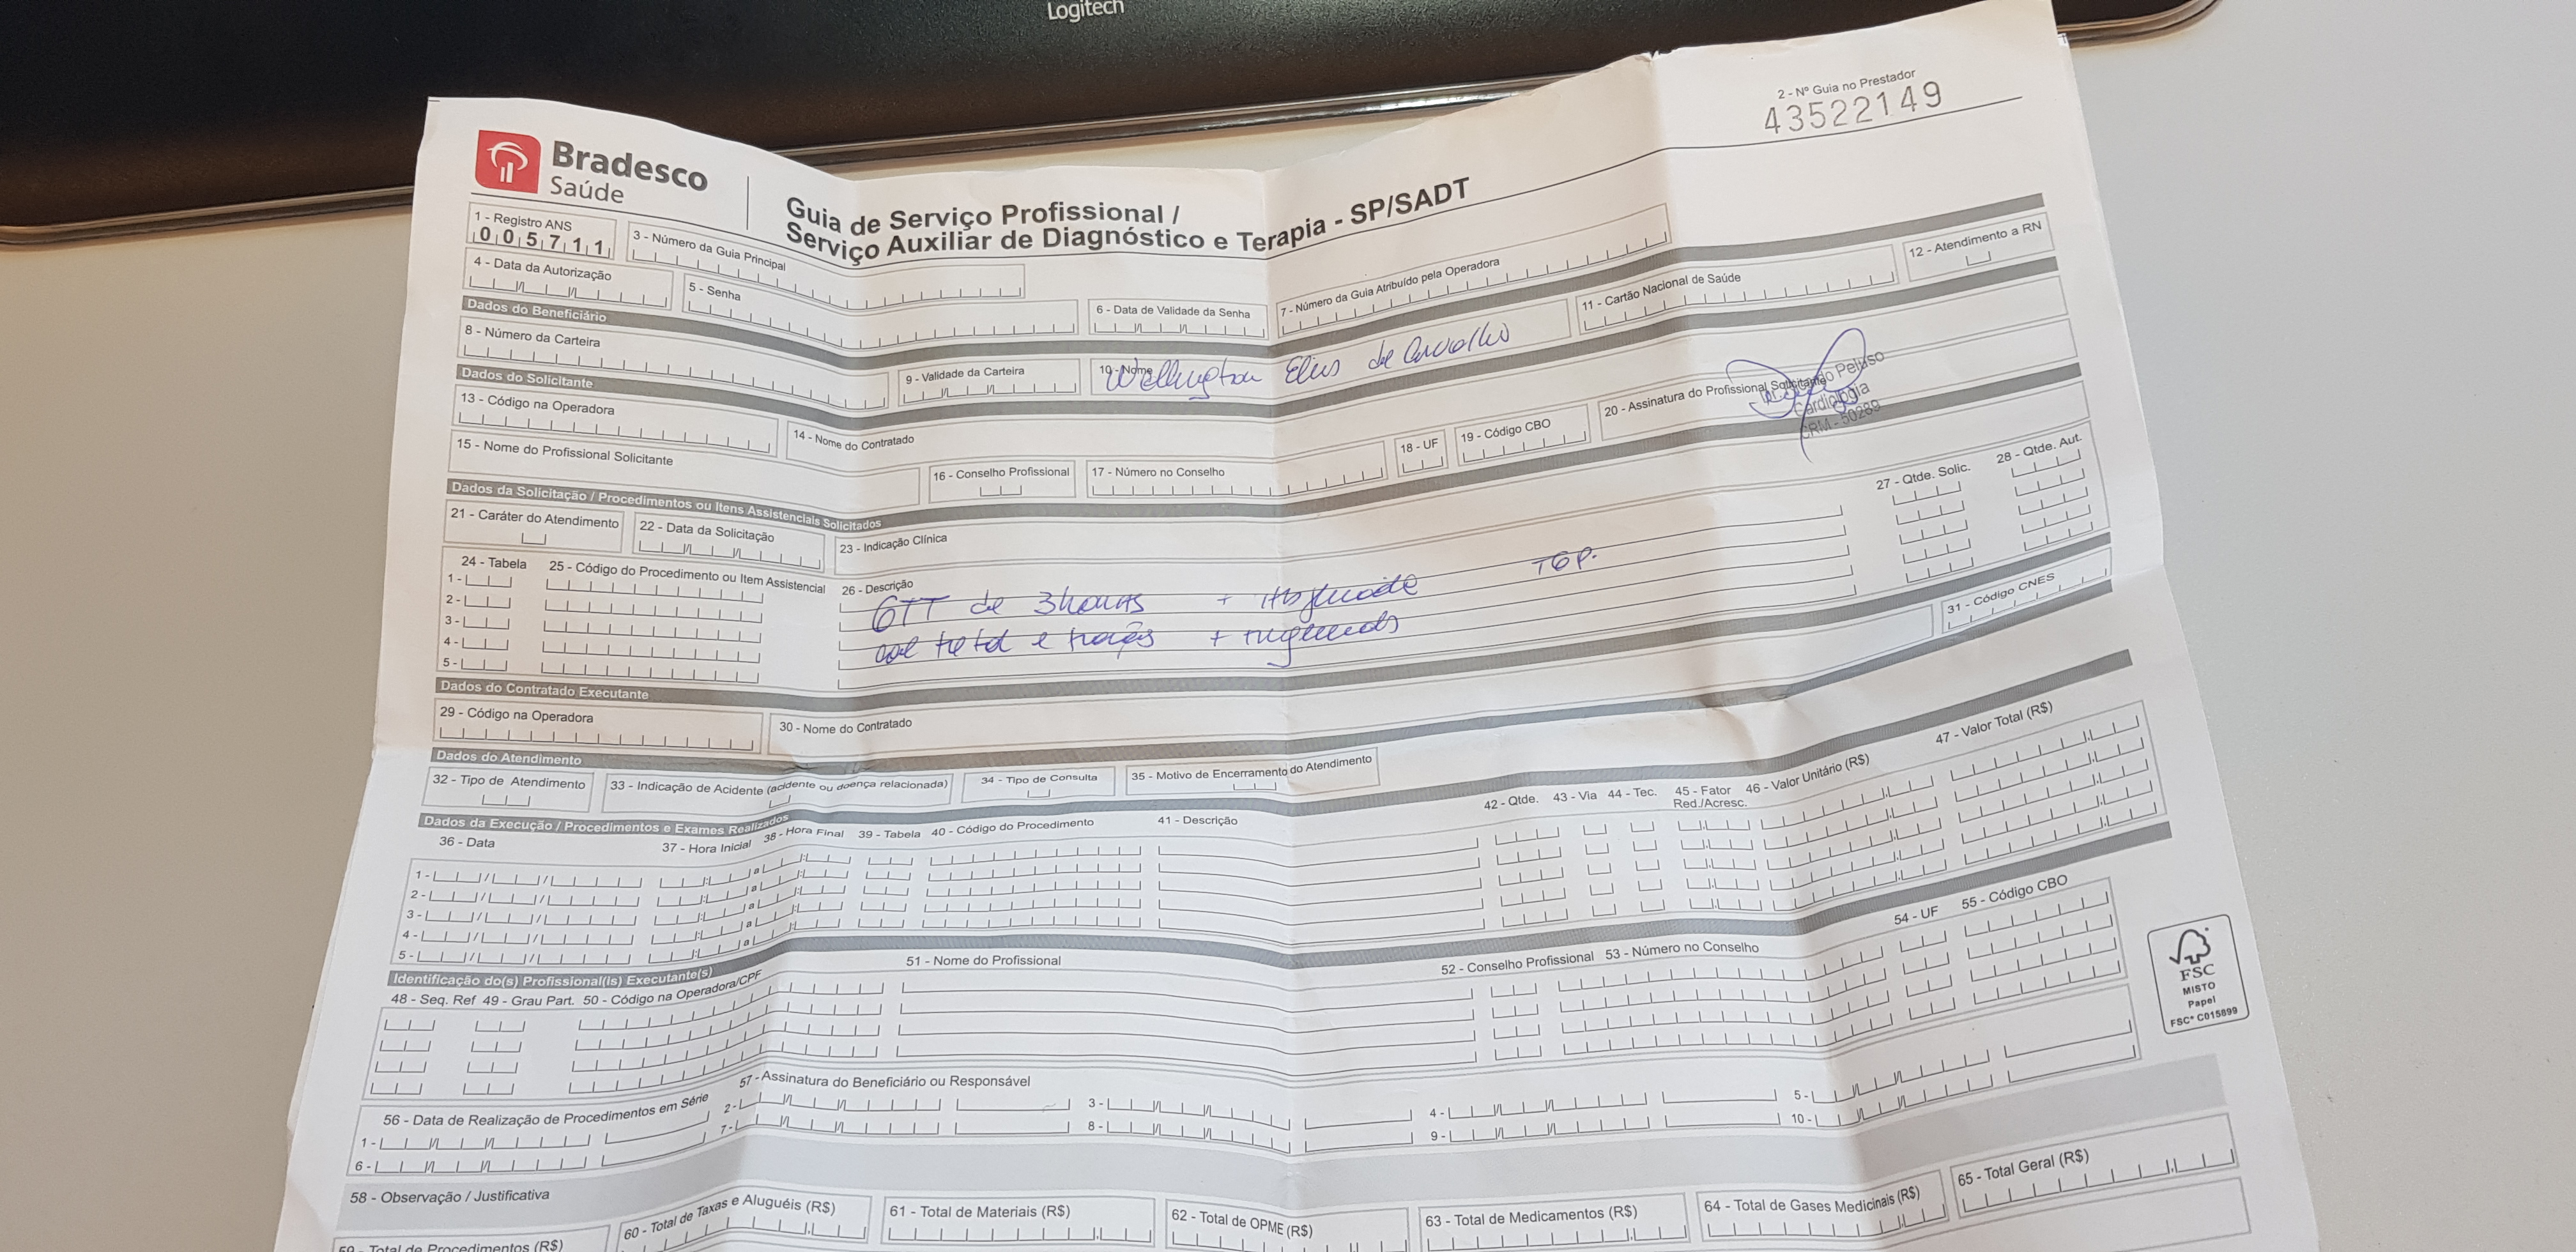 Logitech
2 - Nº Guia no Prestador
43522149
Bradesco
Saúde
Guia de Serviço Profissional /
Serviço Auxiliar de Diagnóstico e Terapia - SP/SADT
1 - Registro ANS
005711
3 - Número da Guia Principal
4 - Data da Autorização
5 - Senha
6 - Data de Validade da Senha
7 - Número da Guia Atribuído pela Operadora
Dados do Beneficiário
8 - Número da Carteira
9 - Validade da Carteira
10 - Nome
Wellington Elias de Carvalho
11 - Cartão Nacional de Saúde
12 - Atendimento a RN
Dados do Solicitante
13 - Código na Operadora
14 - Nome do Contratado
15 - Nome do Profissional Solicitante
16 - Conselho Profissional
17 - Número no Conselho
18 - UF
19 - Código CBO
20 - Assinatura do Profissional Solicitante
Peluso
Cardiologia
CRM - 50289
Dados da Solicitação / Procedimentos ou Itens Assistenciais Solicitados
21 - Caráter do Atendimento
22 - Data da Solicitação
23 - Indicação Clínica
24 - Tabela
25 - Código do Procedimento ou Item Assistencial
26 - Descrição
27 - Qtde. Solic.
28 - Qtde. Aut.
1 - GTT de 3 horas + TGP.
2 - col total e frações +
3 -
4 -
5 -
Dados do Contratado Executante
29 - Código na Operadora
30 - Nome do Contratado
31 - Código CNES
Dados do Atendimento
32 - Tipo de Atendimento
33 - Indicação de Acidente (acidente ou doença relacionada)
34 - Tipo de Consulta
35 - Motivo de Encerramento do Atendimento
Dados da Execução / Procedimentos e Exames Realizados
36 - Data
37 - Hora Inicial
38 - Hora Final
39 - Tabela
40 - Código do Procedimento
41 - Descrição
42 - Qtde.
43 - Via
44 - Tec.
45 - Fator Red./Acresc.
46 - Valor Unitário (R$)
47 - Valor Total (R$)
1 - / / : a :
2 - / / : a :
3 - / / : a :
4 - / / : a :
5 - / / : a :
Identificação do(s) Profissional(is) Executante(s)
48 - Seq. Ref
49 - Grau Part.
50 - Código na Operadora/CPF
51 - Nome do Profissional
52 - Conselho Profissional
53 - Número no Conselho
54 - UF
55 - Código CBO
FSC
MISTO
Papel
FSC® C015899
56 - Data de Realização de Procedimentos em Série
57 - Assinatura do Beneficiário ou Responsável
1 - 2 - 3 - 4 - 5 -
6 - 7 - 8 - 9 - 10 -
58 - Observação / Justificativa
59 - Total de Procedimentos (R$)
60 - Total de Taxas e Aluguéis (R$)
61 - Total de Materiais (R$)
62 - Total de OPME (R$)
63 - Total de Medicamentos (R$)
64 - Total de Gases Medicinais (R$)
65 - Total Geral (R$)